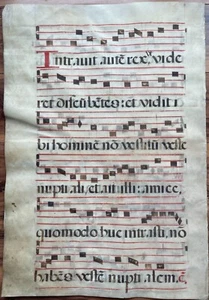 Intravit autē rex, ut vide
ret discūbētes: et vidit i
bi hominē nō vestitū veste
nuptiali, et ait illi: amice,
quomodo huc intrasti, nō
habēs vestē nuptialem. &